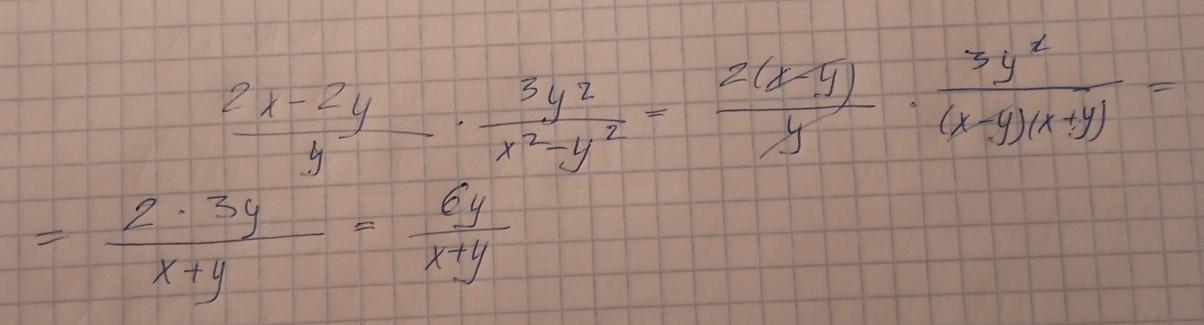 (2x-2y)/y · 3y²/(x²-y²) = 2(x-y)/y · 3y²/((x-y)(x+y)) =
= (2 · 3y)/(x+y) = 6y/(x+y)